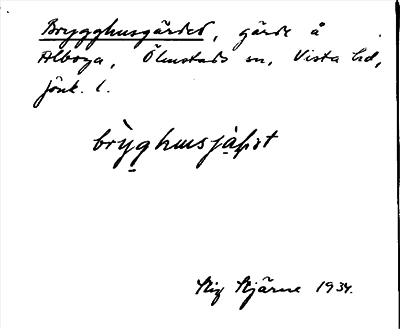 Brygghusgärdet, gärde å
Alboga, Ölmstads sn, Vista hd,
Jönk. l.
brỳghusjàṣt
Stig Stjärne 1934.